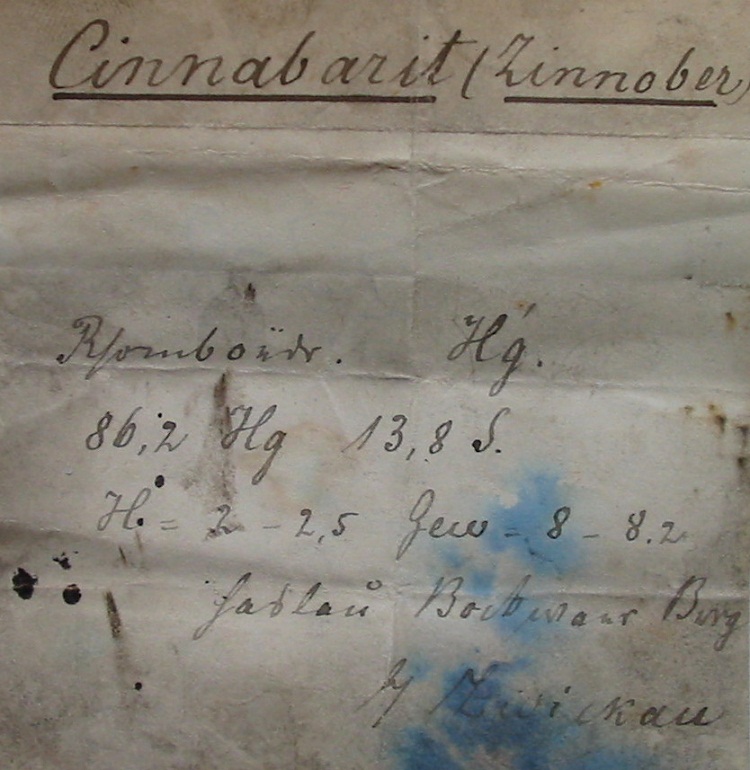 Cinnabarit (Zinnober)
Rhomboëdr. Hǵ.
86,2 Hg 13,8 S.
H. = 2 – 2,5 Gew = 8 – 8.2
Berg
Zwickau